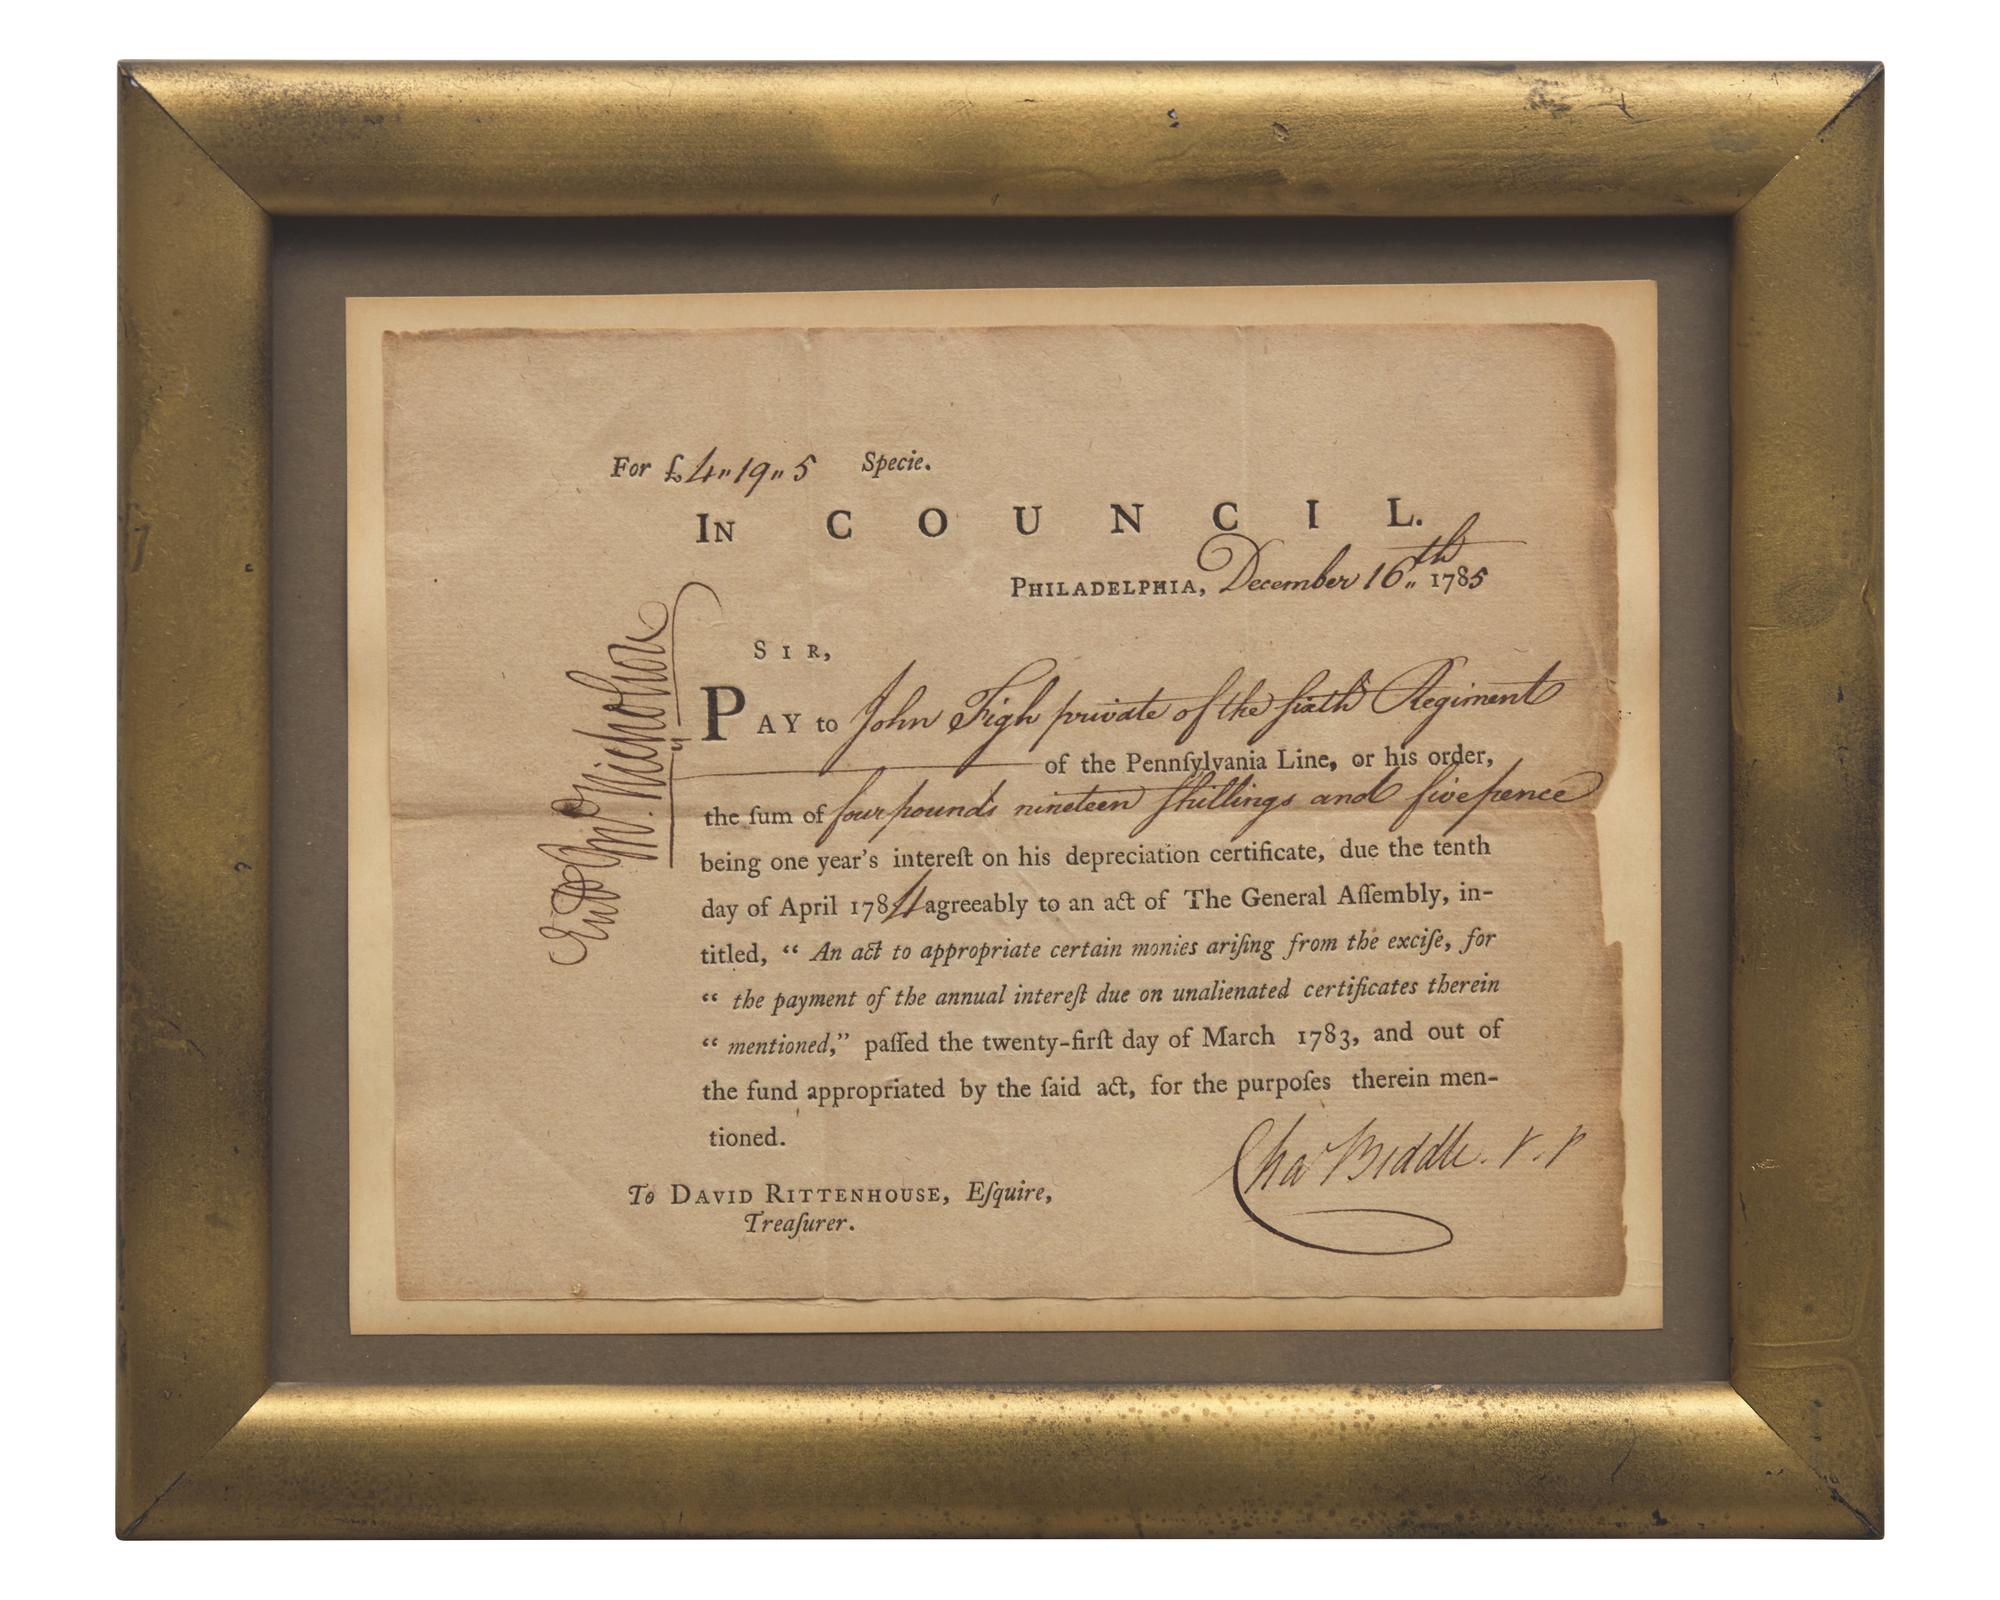 For £4,,19,,5 Specie.
IN COUNCIL.
PHILADELPHIA, December 16,,th 1785
SIR,
PAY to John Figh private of the sixth Regiment
of the Pennſylvania Line, or his order,
the ſum of four pounds nineteen shillings and five pence
being one year's intereſt on his depreciation certificate, due the tenth
day of April 1784 agreeably to an act of The General Aſſembly, in-
titled, “ An act to appropriate certain monies ariſing from the exciſe, for
“ the payment of the annual intereſt due on unalienated certificates therein
“ mentioned,” paſſed the twenty-firſt day of March 1783, and out of
the fund appropriated by the ſaid act, for the purpoſes therein men-
tioned.
Chas Biddle. V. P
To DAVID RITTENHOUSE, Eſquire,
Treaſurer.
Entd Jno. Nicholson